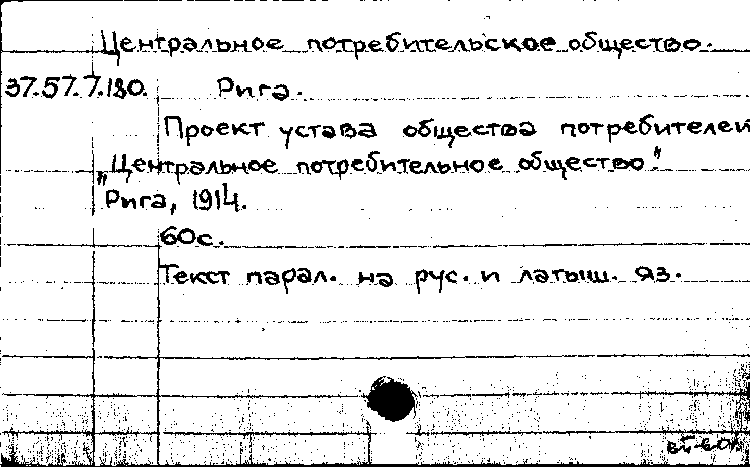 Центральное потребительское общество.
37.57.7.180. Рига.
Проект устава общества потребителей
„Центральное потребительное общество."
Рига, 1914.
60с.
Текст парал. на рус. и латыш. яз.